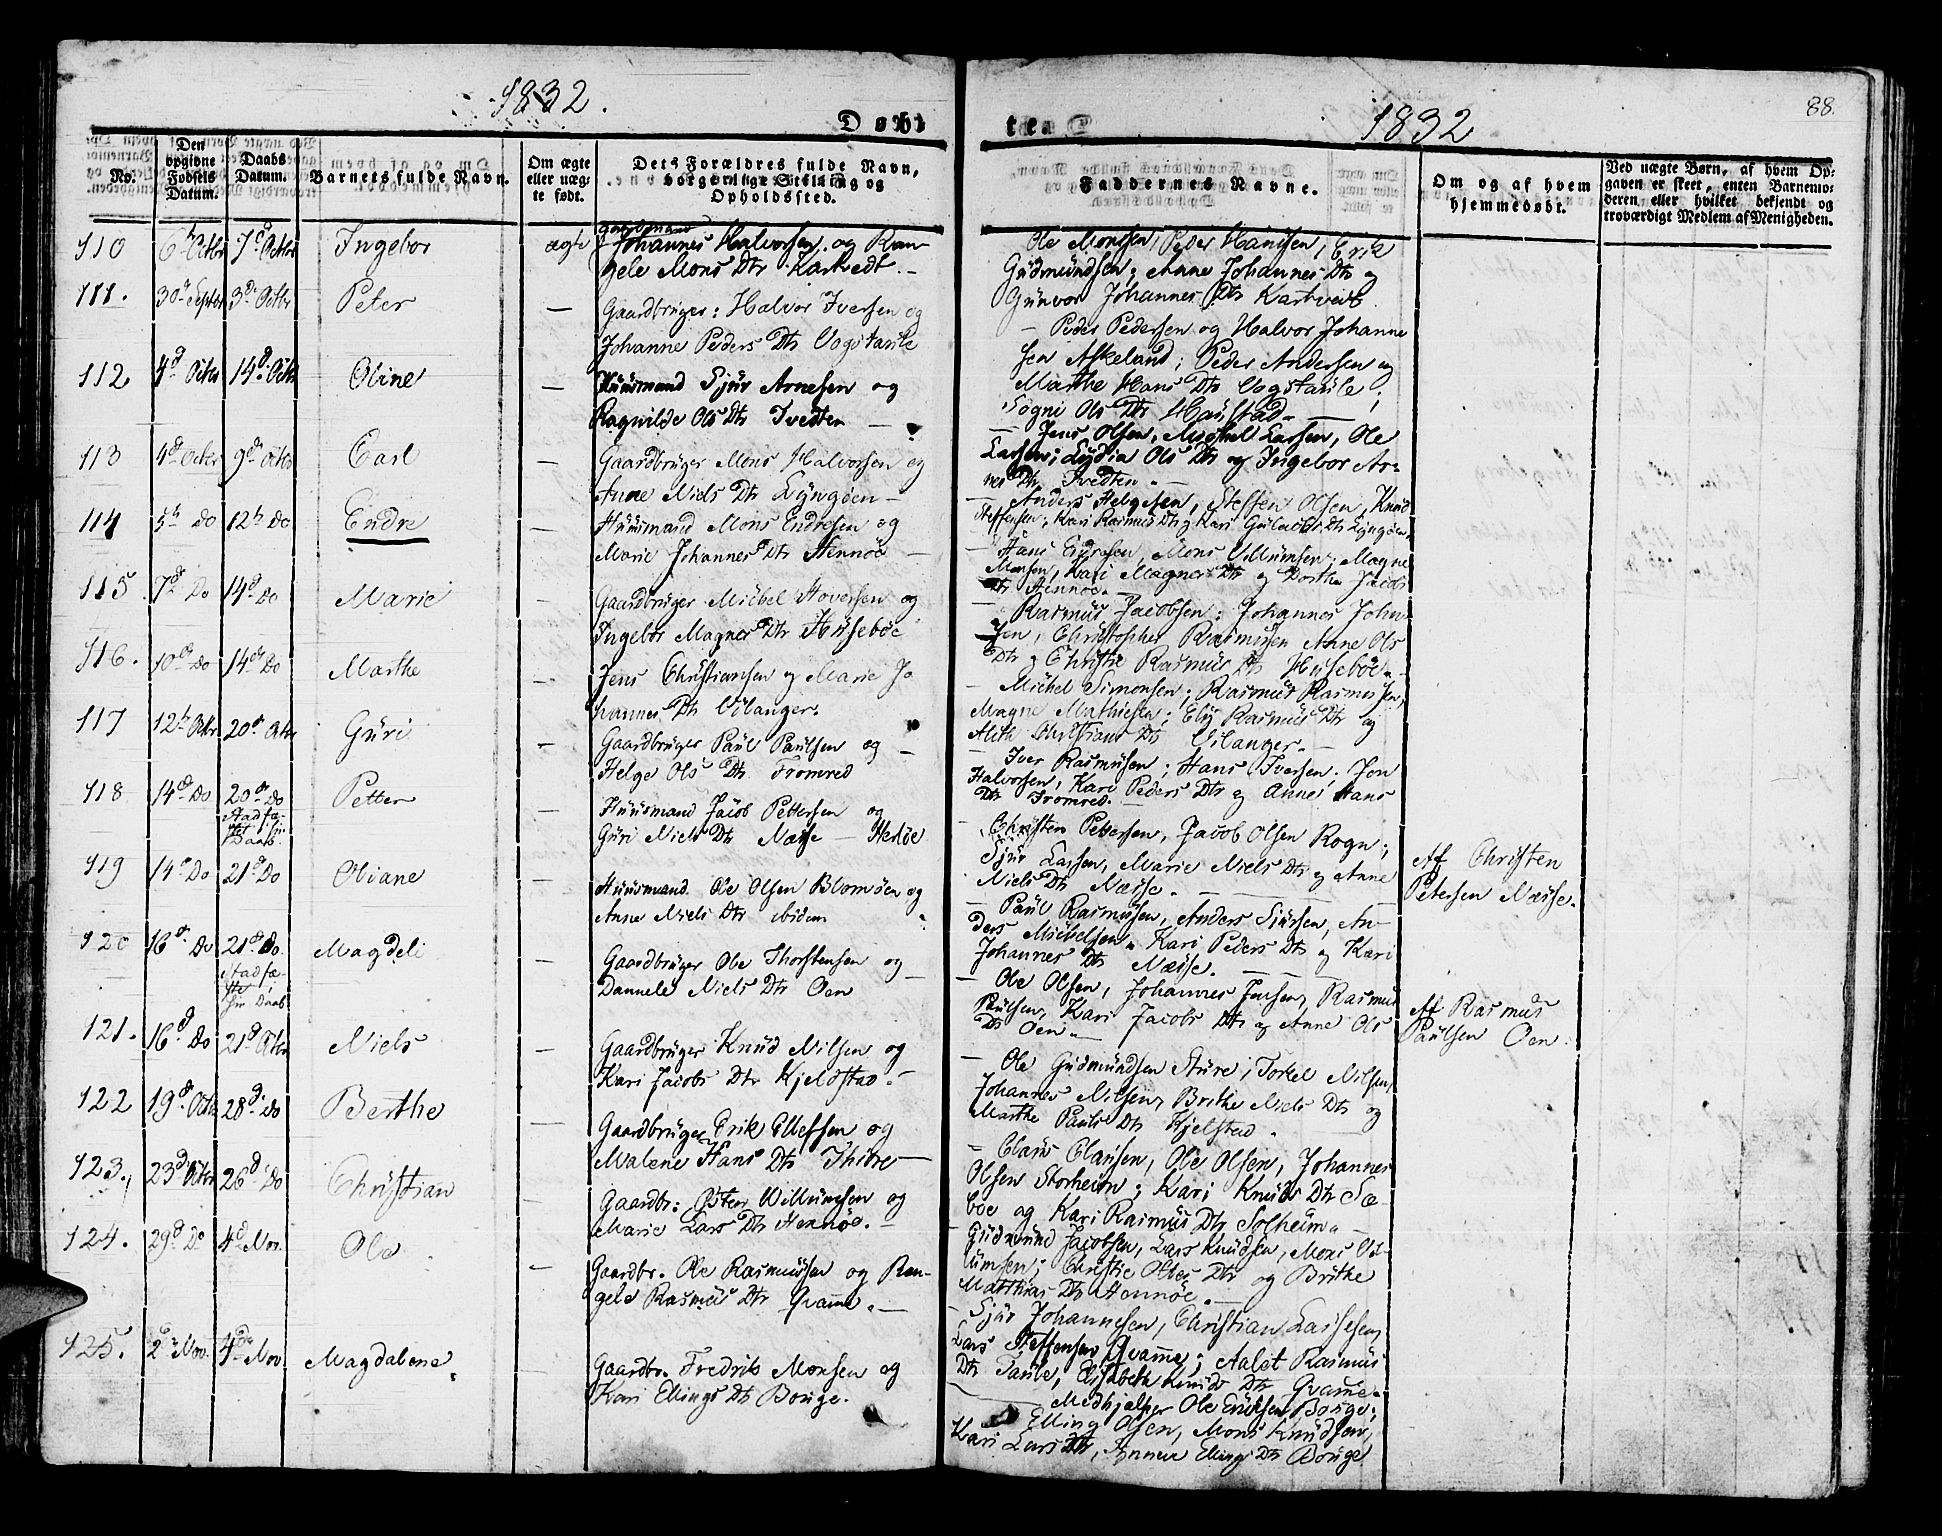 1832.
Døbte
1832
88.
No.
Den opgivne Fødsels Datum.
Daabs Datum.
Barnets fulde Navn.
Om ægte eller uægte født.
Dets Forældres fulde Navn, borgerlige Stilling og Opholdssted.
Faddernes Navne.
Om og af hvem hjemmedøbt.
Ved uægte Børn, af hvem Opgaven er skeet, enten Barnemoderen eller hvilket bekjendt og troværdigt Medlem af Menigheden.
110 6te Octbr 7d Octbr Ingebor ægte Gaardmand
Johannes Halvorsen og Ran-
gele Mons Dtr Kartvedt.
Ole Monssen, Peder Hanssen, Erik
Gudmundsen; Anne Johannes Dtr og
Gunvor Johannes Dtr Kartveit.
111. 30d Septbr 3d Octbr Peter — Gaardbruger: Halvor Iversen og
Johanne Peders Dtr Vogstaule
— Peder Pedersen og Halvor Johanne
sen Askeland; Peder Andersen og
Marthe Hans Dtr Vogstaule;
Sogni Ols Dtr Haustad. —
112 4d Octbr 14d Octbr Oline — Huusmand Sjur Arnesen og
Ragnilde Ols Dtr Tvedten —
— Jens Olsen, Michel Larsen, Ole
Larsen; Lydia Ols Dtr og Ingebor Ar-
nes Dtr Tvedten. —
113 4d Octbr 9d Octbr Carl — Gaardbruger Mons Halvorsen og
Anne Niels Dtr Lyngøen —
— Anders Helgesen, Steffen Olsen, Knud
Steffensen; Kari Rasmus Dtr og Kari Dtr Lyngøen.
114 5te Do 12te Do Endre — Huusmand Mons Endresen og
Marie Johannes Dtr Hennøe —
— Hans Endresen, Mons Villumsen; Magne
Monsen, Kari Magnes Dtr og Dorthe Jacobs
Dtr Hennøe. —
115. 7d Do 14d Do Marie — Gaardbruger Michel Hoversen og
Ingebor Magnes Dtr Husebøe
— Rasmus Jacobsen; Johannes John-
sen, Christopher Rasmussen Anne Ols
Dtr og Christie Rasmus Dtr Husebøe. —
116. 10de Do 14de Do Marthe — Jens Christiansen og Marie Jo
hannes Dtr Vilanger.
— Michel Simonsen; Rasmus Rasmussen,
Magne Mathiesen; Elij Rasmus Dtr og
Alith Christians Dtr Vilanger. —
117 12te Octbr 20d Octbr Guri — Gaardbruger Paul Paulsen og —
Helge Ols Dtr Fromred
— Iver Rasmusen; Hans Iversen. Jon
Halvorsen, Kari Peders Dtr og Anne Hans
Dtr Fromred. —
118 14d Do 20d Do Petter — Huusmand Jacob Pettersen og
Stadfæ-
stet i sin
Daab.
Guri Niels Dtr Næsse — Herløe
— Christen Pettersen, Jacob Olsen Rogn;
Sjur Larsen, Marie Niels Dtr og Anne
Niels Dtr Næsse. —
Af Christen
Petersen Næsse.
119 14d Do 21d Do Oliane — Huusmand Ole Olsen Blomøen og
Anne Niels Dtr ibidem
— Paul Rasmussen, Anders Sjursen, An-
ders Michelsen. Kari Peders Dtr og Kari
Johannes Dtr Næsse. —
120 16d Do 21d Do. Magdeli — Gaardbruger Ole Thorstensen og —
Stadfæ-
stet i
sin Daab
Dannele Niels Dtr Oen
— Ole Olsen, Johannes Jensen, Rasmus
Paulsen, Kari Jacobs Dtr og Anne Ols
Dtr Oen. —
Af Rasmus
Paulsen Oen.
121. 16d Do 21d Octbr Niels — Gaardbruger Knud Nilsen og
Kari Jacobs Dtr Kjeldstad. —
— Ole Gudmundsen Sture; Torkel Nilsen,
Johannes Nilsen, Brithe Niels Dtr og
Marthe Pauls Dtr Kjelstad.
122 19d Octbr 28d Do Berthe — Gaardbruger Erik Ellefsen og
Malene Hans Dtr —
— Claus Clausen, Ole Olsen, Johannes
Olsen Storheim; Kari Knuds Dtr Sæ-
bøe og Kari Rasmus Dtr Solheim. —
123. 23d Octbr 26d Do Christian — Gaardbr: Peter Willumsen og
Marie Lars Dtr Hennøe. —
Gudmund Jacobsen, Lars Knudsen, Mons Vil-
lumsen; Christie Olbes Dtr og Brithe
Matthias Dtr Hennøe. —
124. 29d Do 4d Nov. Ole — Gaardbr. Ole Rasmussen og Ran-
gele Rasmus Dtr Qvamme. —
— Sjur Johannesen, Christian Larsesen,
Lars Steffensen Qvamme; Aalet Rasmus
Dtr Taule, Elisabeth Knuds Dtr Qvamme.
125. 2den Nov. 4de Nov. Magdalene. Gaardbr. Fredrik Monsen og
Kari Ellings Dtr Bouge.
— Medhjelper Ole Ericksen Bouge;
Elling Olsen, Mons Knudsen,
Kari Lars Dtr, Anne Ellings Dtr Bouge